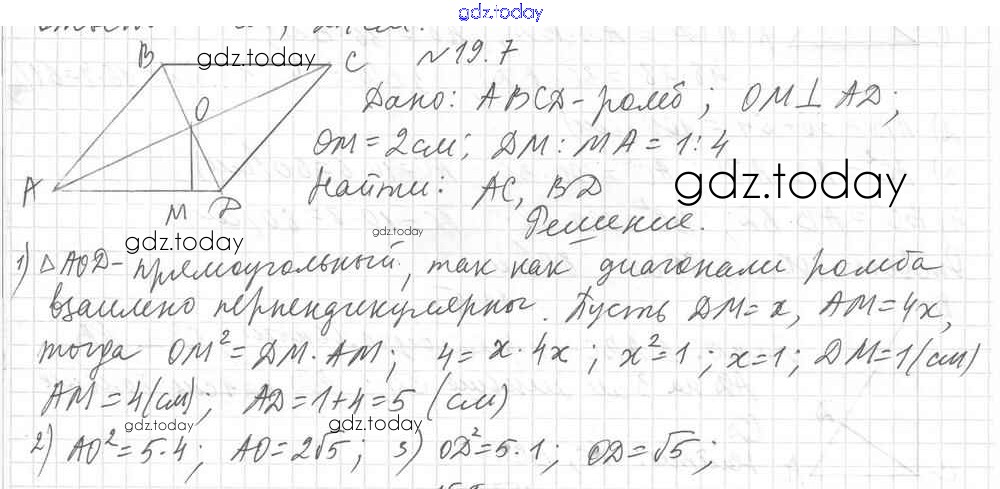 gdz.today
B C №19.7
gdz.today
O Дано: ABCD - ромб; OM⊥AD;
OM = 2см; DM : MA = 1:4
A Найти: AC, BD gdz.today
M D Решение.
gdz.today gdz.today
1) △AOD - прямоугольный, так как диагонали ромба
взаимно перпендикулярны. Пусть DM = x, AM = 4x,
тогда OM² = DM · AM; 4 = x · 4x; x² = 1; x = 1; DM = 1(см)
AM = 4(см); AD = 1+4 = 5 (см)
gdz.today gdz.today
2) AO² = 5·4; AO = 2√5; 3) OD² = 5·1; OD = √5;